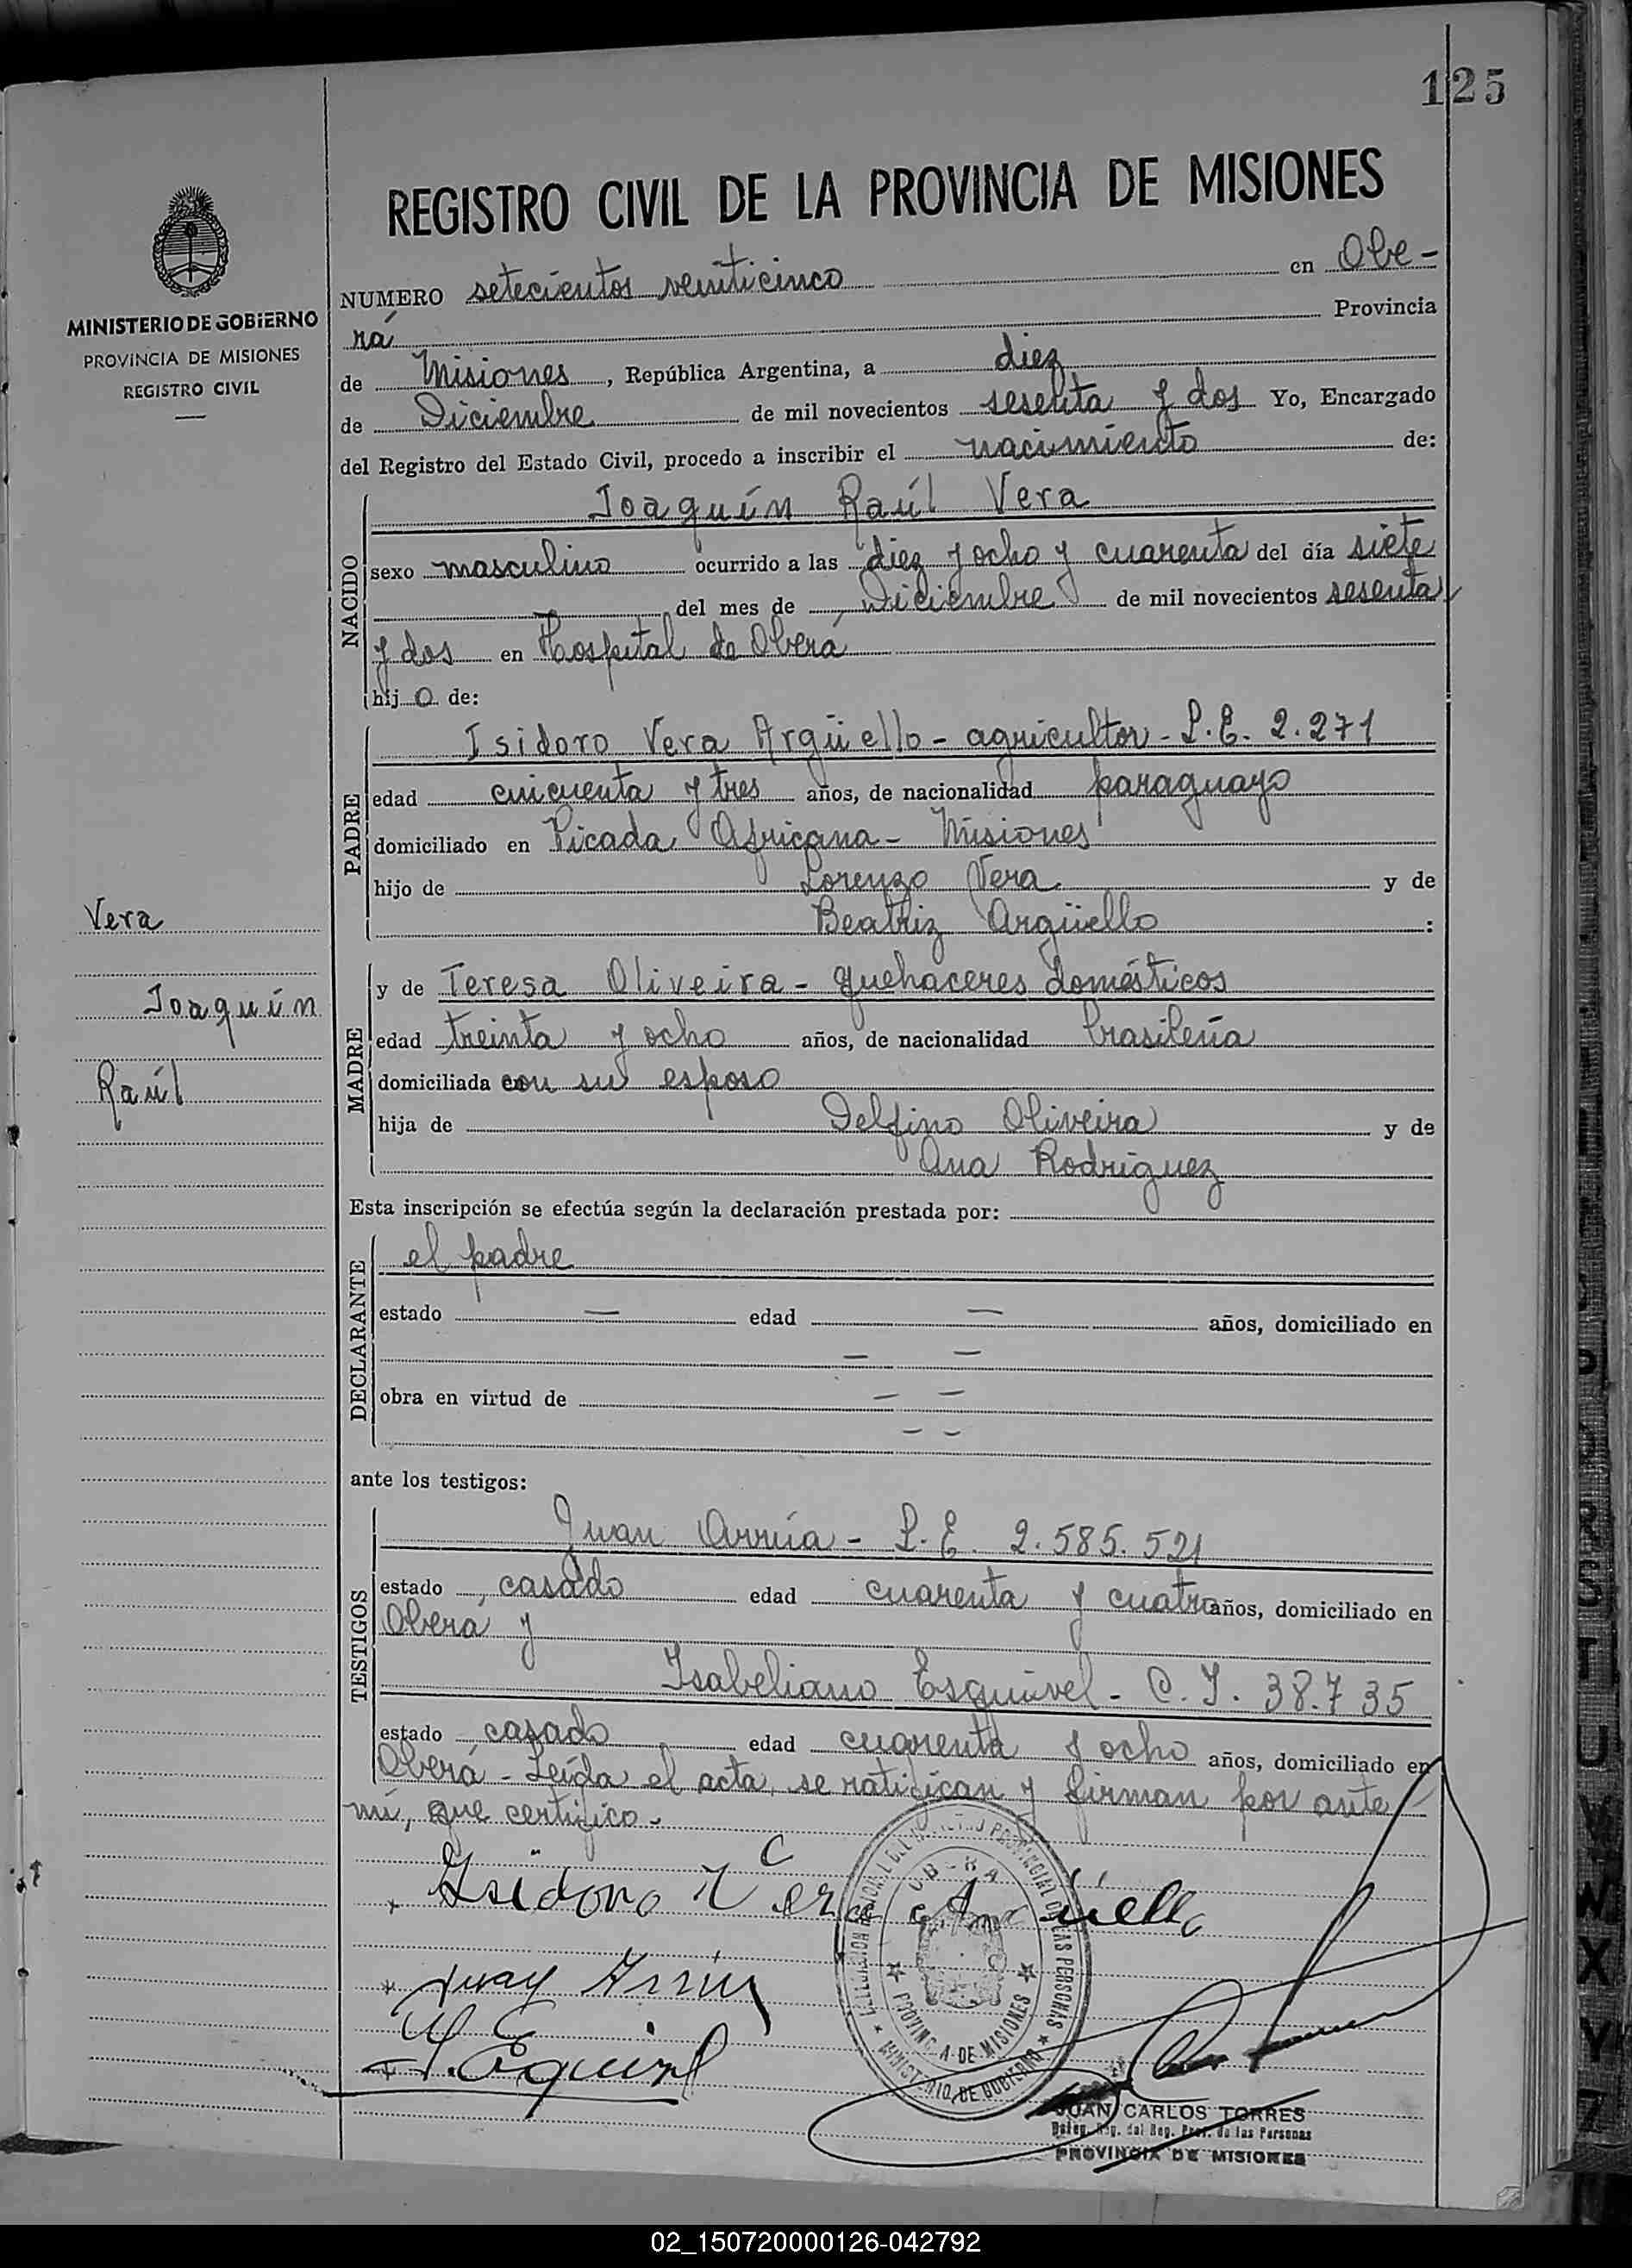 125
REGISTRO CIVIL DE LA PROVINCIA DE MISIONES
MINISTERIO DE GOBIERNO
PROVINCIA DE MISIONES
REGISTRO CIVIL
NUMERO setecientos veinticinco en Obe-
rá Provincia
de Misiones, República Argentina, a diez
de Diciembre de mil novecientos sesenta y dos Yo, Encargado
del Registro del Estado Civil, procedo a inscribir el nacimiento de:
NACIDO
Joaquín Raúl Vera
sexo masculino ocurrido a las diez y ocho y cuarenta del día siete
del mes de Diciembre de mil novecientos sesenta
y dos en Hospital de Oberá
hijo de:
PADRE
Isidoro Vera Argüello - agricultor - L.E. 2.271
edad cincuenta y tres años, de nacionalidad paraguayo
domiciliado en Picada Africana - Misiones
hijo de Lorenzo Vera y de
Beatriz Argüello :
Vera
Joaquín
Raúl
MADRE
y de Teresa Oliveira - quehaceres domésticos
edad treinta y ocho años, de nacionalidad brasileña
domiciliada con su esposo
hija de Delfino Oliveira y de
Ana Rodriguez
Esta inscripción se efectúa según la declaración prestada por:
DECLARANTE
el padre
estado — edad — años, domiciliado en
— —
obra en virtud de — —
— —
ante los testigos:
TESTIGOS
Juan Arrúa - L.E. 2.585.521
estado casado edad cuarenta y cuatro años, domiciliado en
Oberá y
Isabeliano Esquivel - C.I. 38.735
estado casado edad cuarenta y ocho años, domiciliado en
Oberá - Leída el acta, se ratifican y firman por ante
mí, que certifico.
Isidoro Vera Argüello
Juan Arrúa
I. Esquivel
PROVINCIA DE MISIONES
MINISTERIO DE GOBIERNO
JUAN CARLOS TORRES
Deleg. Reg. del Reg. Prov. de las Personas
PROVINCIA DE MISIONES
U
V
W
X
Y
Z
02_150720000126-042792